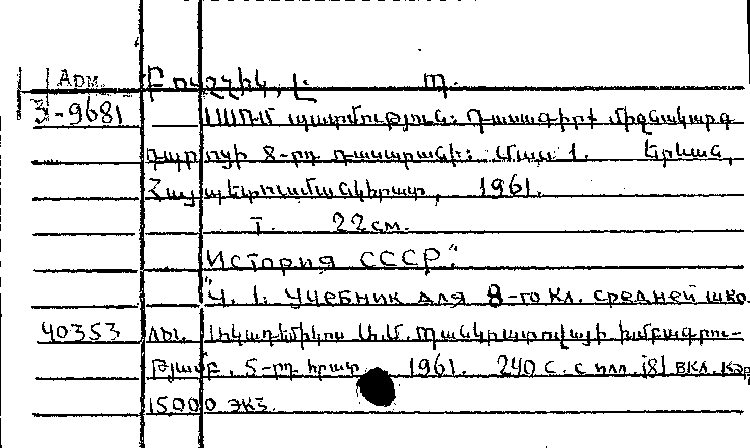 Арм. Բուշչիկ, Լ. Պ.
3-9681 ՍՍՌՄ պատմություն: Դասագիրք միջնակարգ
դպրոցի 8-րդ դասարանի: Մաս 1. Երևան,
Հայպետուսմանկհրատ, 1961.
т. 22 см.
История СССР."
"Ч. 1. Учебник для 8-го кл. средней шко
40353 лы. Ակադեմիկոս Ա.Մ. Պանկրատովայի խմբագրու-
թյամբ. 5-րդ հրատ. 1961. 240 с. с илл. [8] вкл. кар
15000 экз.